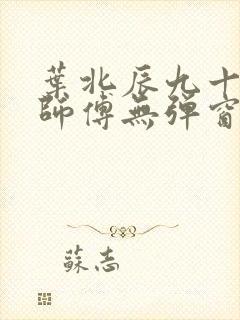 葉北辰九十
師傅無彈窗
蘇志